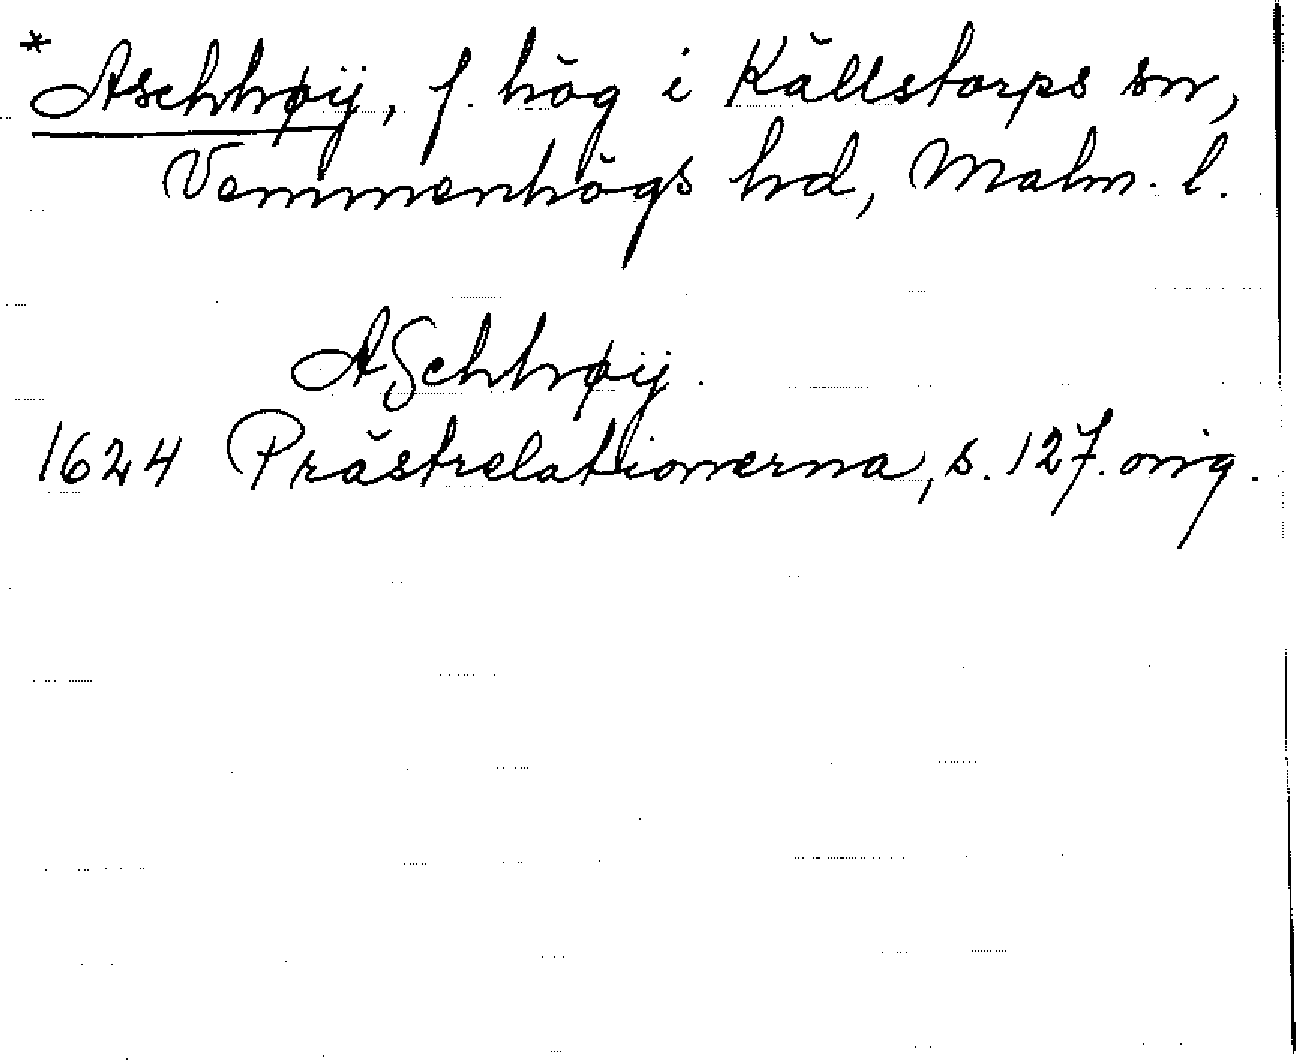 * Aschhøÿ, f. hög i Källstorps sn,
Vemmenhögs hd, Malm. l.
Aſchhøÿ.
1624 Prästrelationerna, s. 127. orig.